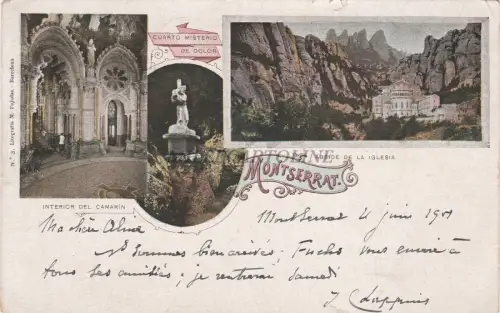 CUARTO MISTERIO
DE DOLOR
ABSIDE DE LA IGLESIA
MONTSERRAT.
INTERIOR DEL CAMARIN
Nº 3. Llorens
Barcelona
Montserrat 4 juin 1901
Ma chère Alma
Nous sommes bien arrivés; Fuchs vous envoie
tous ses amitiés; je rentrerai samedi
J